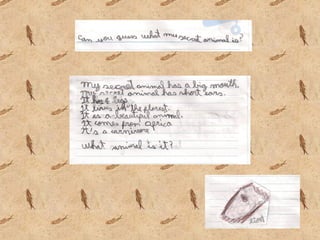 Can you guess what my secret animal is?
My secret animal has a big mouth.
My secret animal has short ears.
It has 4 legs.
It lives in the forest.
It is a beautiful animal.
It comes from Africa
It's a carnivore!
What animal is it?